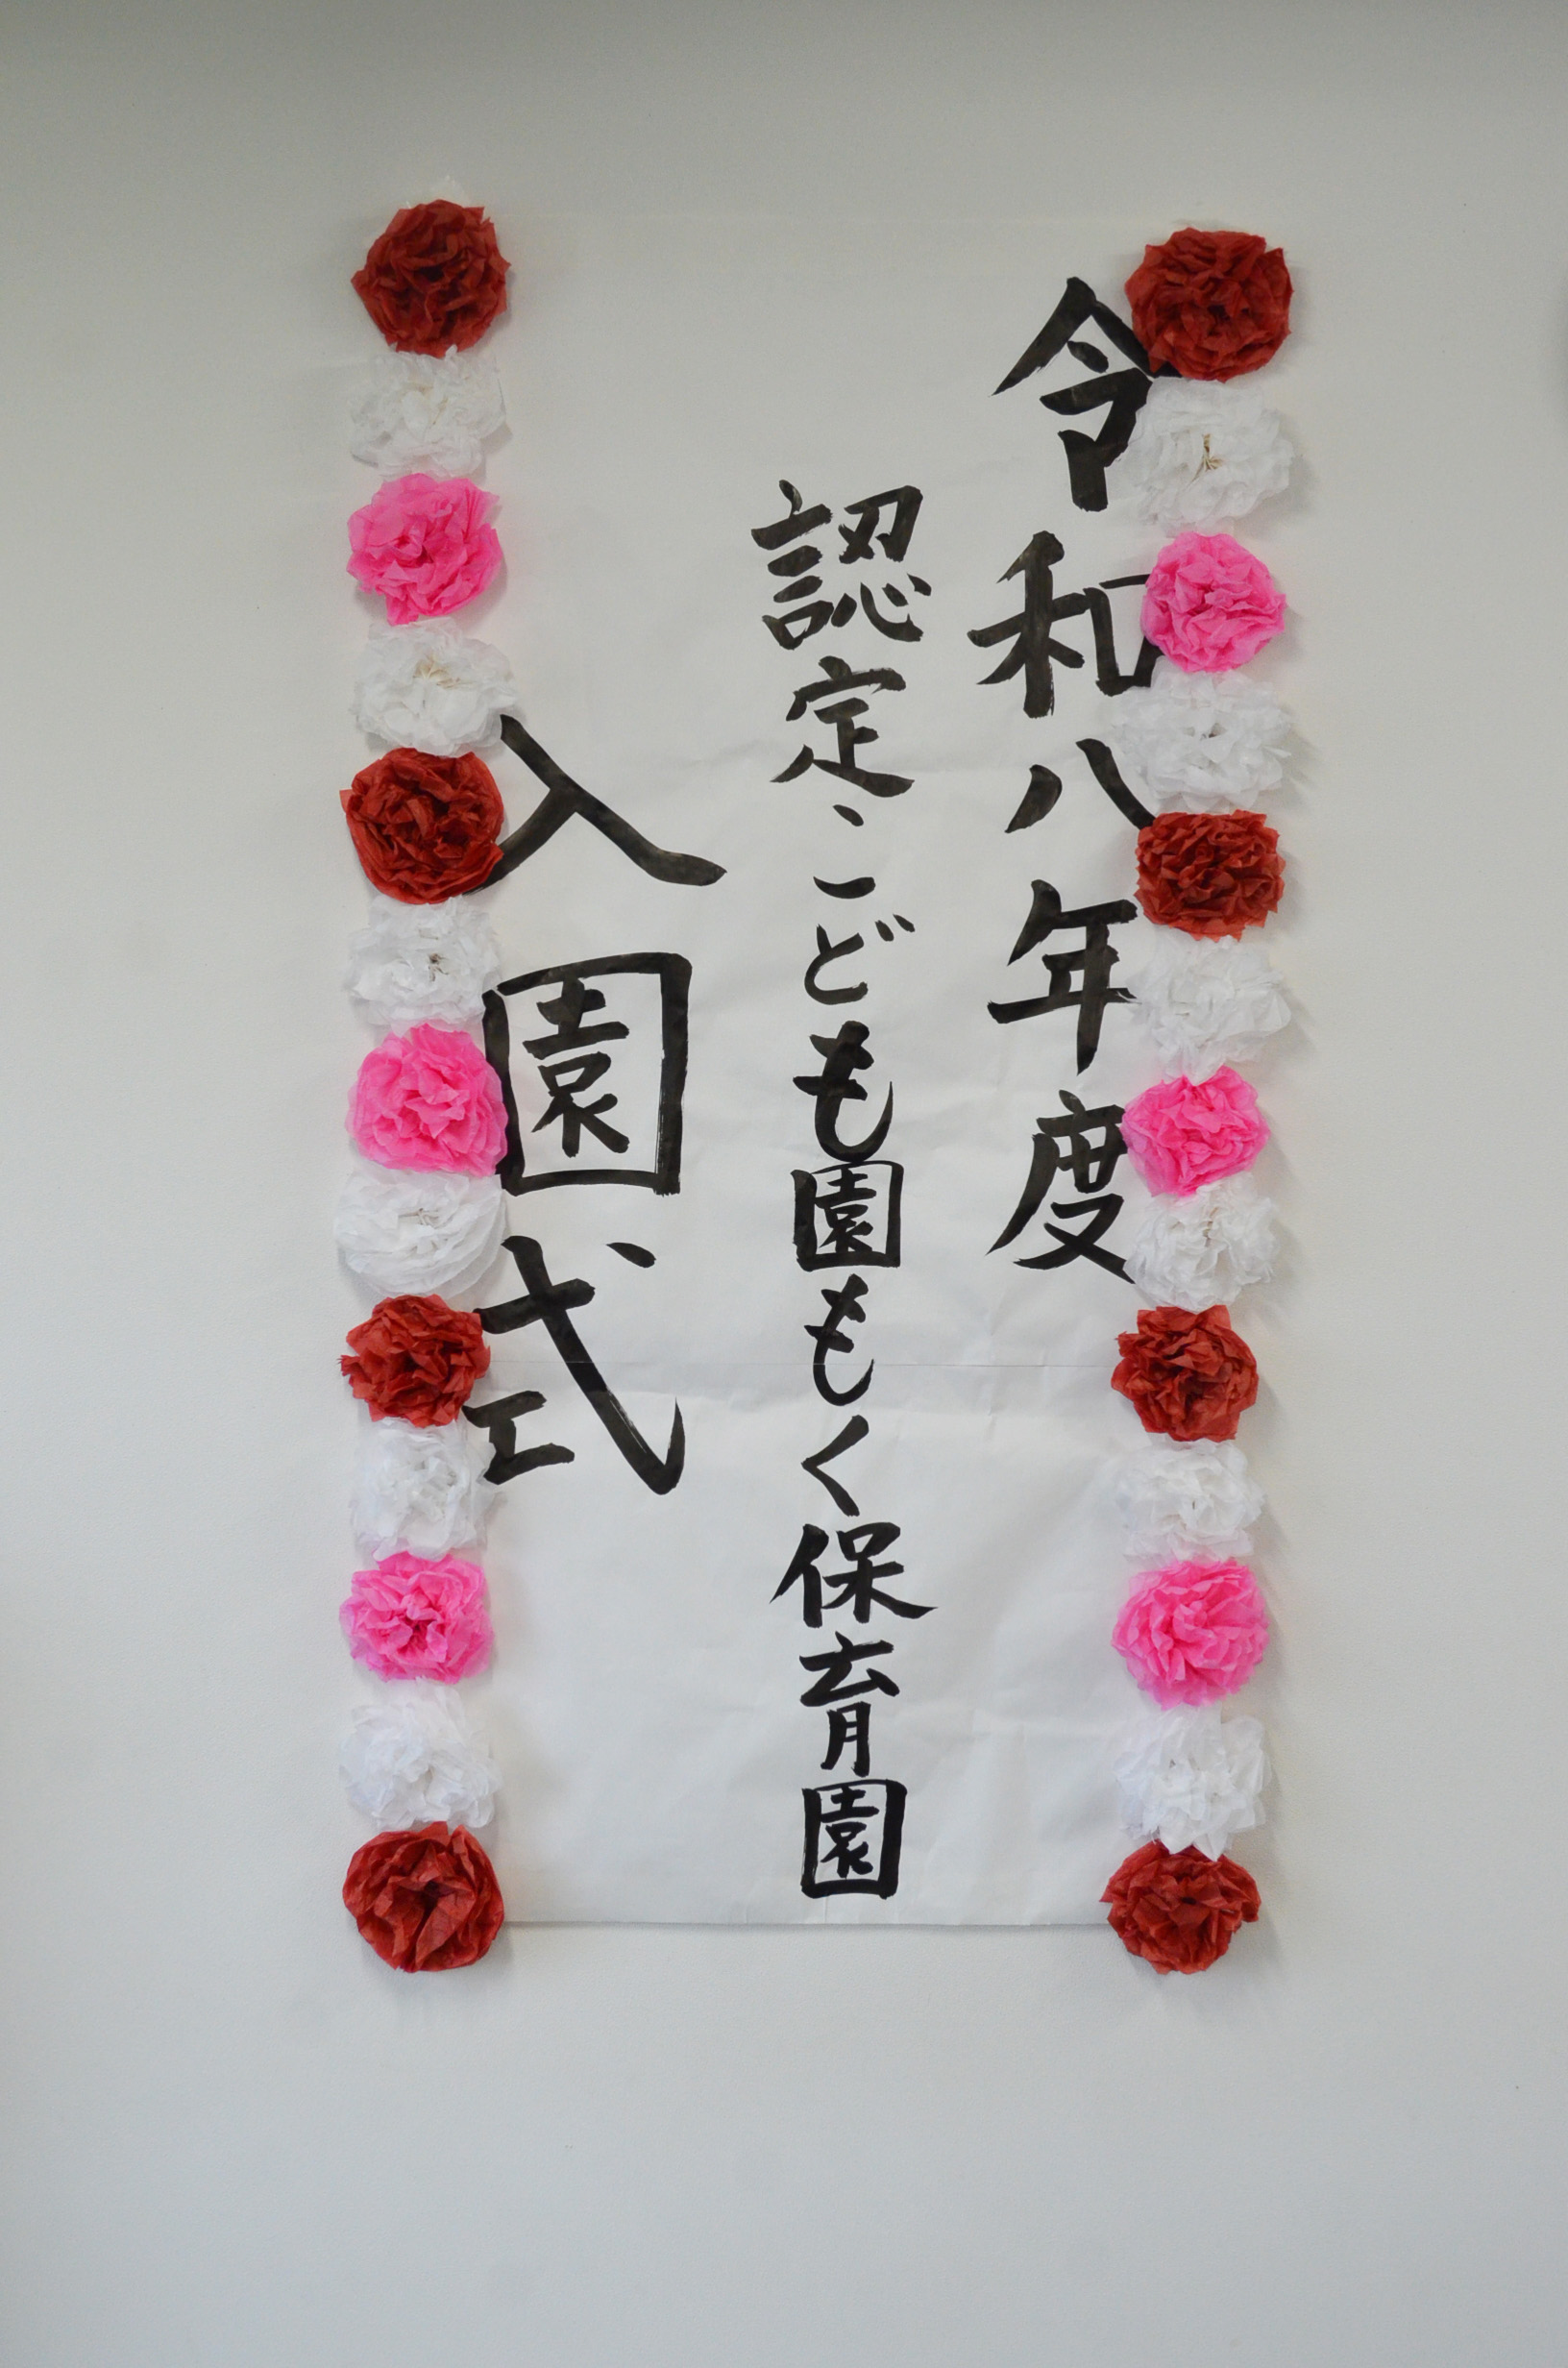 令和八年度
認定こども園もく保育園
入園式